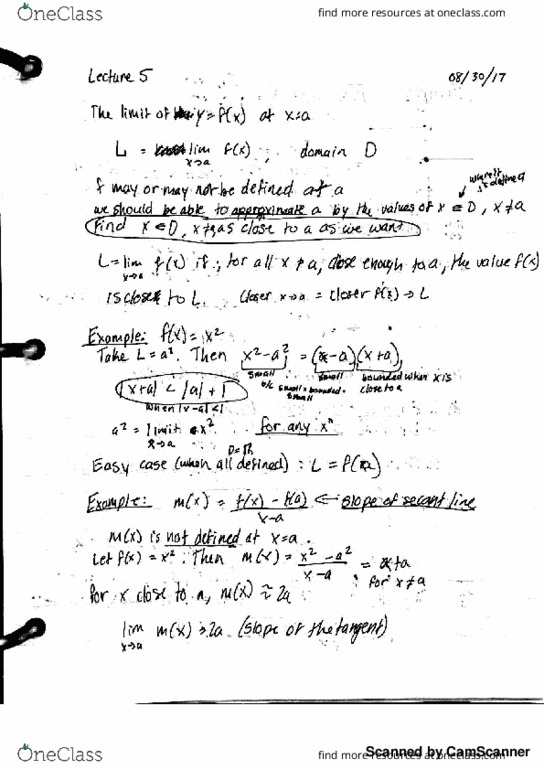 OneClass
find more resources at oneclass.com
Lecture 5
08/30/17
The limit of y=f(x) at x=a
L = lim f(x), domain D
x→a
f may or may not be defined at a
where it is defined
we should be able to approximate a by the values of x ∈ D, x≠a
Find x∈D, x≠a as close to a as we want
L=lim f(x) if, for all x≠a, close enough to a, the value f(x)
x→a
is close to L. Closer x→a = closer f(x)→L
Example: f(x)=x²
Take L=a². Then x²-a² = (x-a)(x+a)
small
small
bounded when x is
close to a
b/c small×bounded=
small
|x+a| < |a|+1
when |x-a|<1
a² = limit x²
x→a
for any xⁿ
D=ℝ
Easy case (when all defined): L=f(a)
Example: m(x) = f(x)-f(a) ← slope of secant line
x-a
m(x) is not defined at x=a.
Let f(x)=x². Then m(x) = x²-a² = x+a
x-a
for x≠a
for x close to a, m(x)≈2a
lim m(x)=2a (slope of the tangent)
x→a
OneClass
find more resources at oneclass.com
Scanned by CamScanner